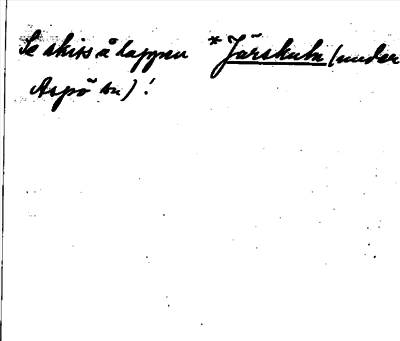 Se skiss å lappen *Järskube (under
Aspö bn)!